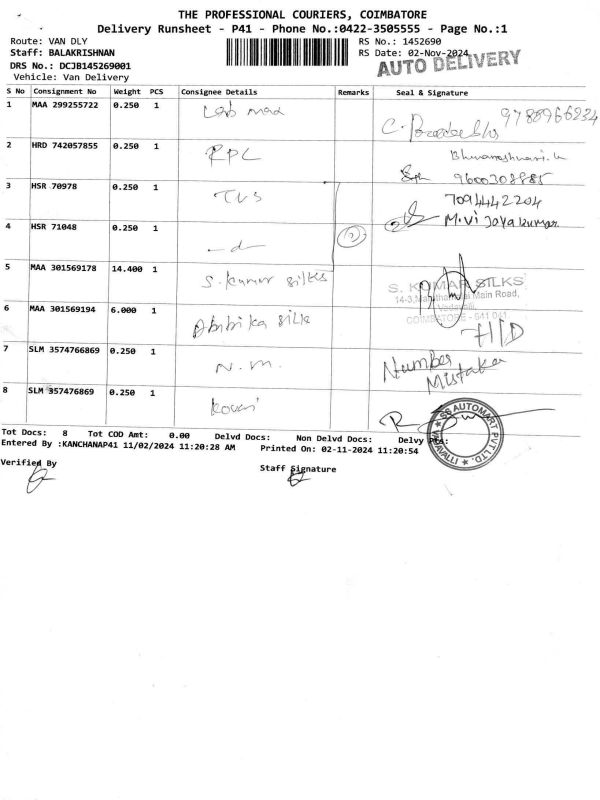 THE PROFESSIONAL COURIERS, COIMBATORE
Delivery Runsheet - P41 - Phone No.:0422-3505555 - Page No.:1
Route: VAN DLY RS No.: 1452690
Staff: BALAKRISHNAN RS Date: 02-Nov-2024
DRS No.: DCJB145269001 AUTO DELIVERY
Vehicle: Van Delivery
S No Consignment No Weight PCS Consignee Details Remarks Seal & Signature
1 MAA 299255722 0.250 1 Lab max 9788966234
2 HRD 742057855 0.250 1 RPL Bhuvaneshwari.k
9600208885
3 HSR 70978 0.250 1 TVS 7094442204
M.Vijayakumar
4 HSR 71048 0.250 1 -d- 2
5 MAA 301569178 14.400 1 S. Kumar Silks S. KUMAR SILKS
14-3, Main Road,
Vadavalli,
COIMBATORE - 641 041
6 MAA 301569194 6.000 1 Silk H/D
7 SLM 3574766869 0.250 1 N.M. Number
Mistake
8 SLM 357476869 0.250 1 Kovai
SS AUTOMART PVT LTD.
Tot Docs: 8 Tot COD Amt: 0.00 Delvd Docs: Non Delvd Docs: Delvy
Entered By :KANCHANAP41 11/02/2024 11:20:28 AM Printed On: 02-11-2024 11:20:54
Verified By Staff Signature